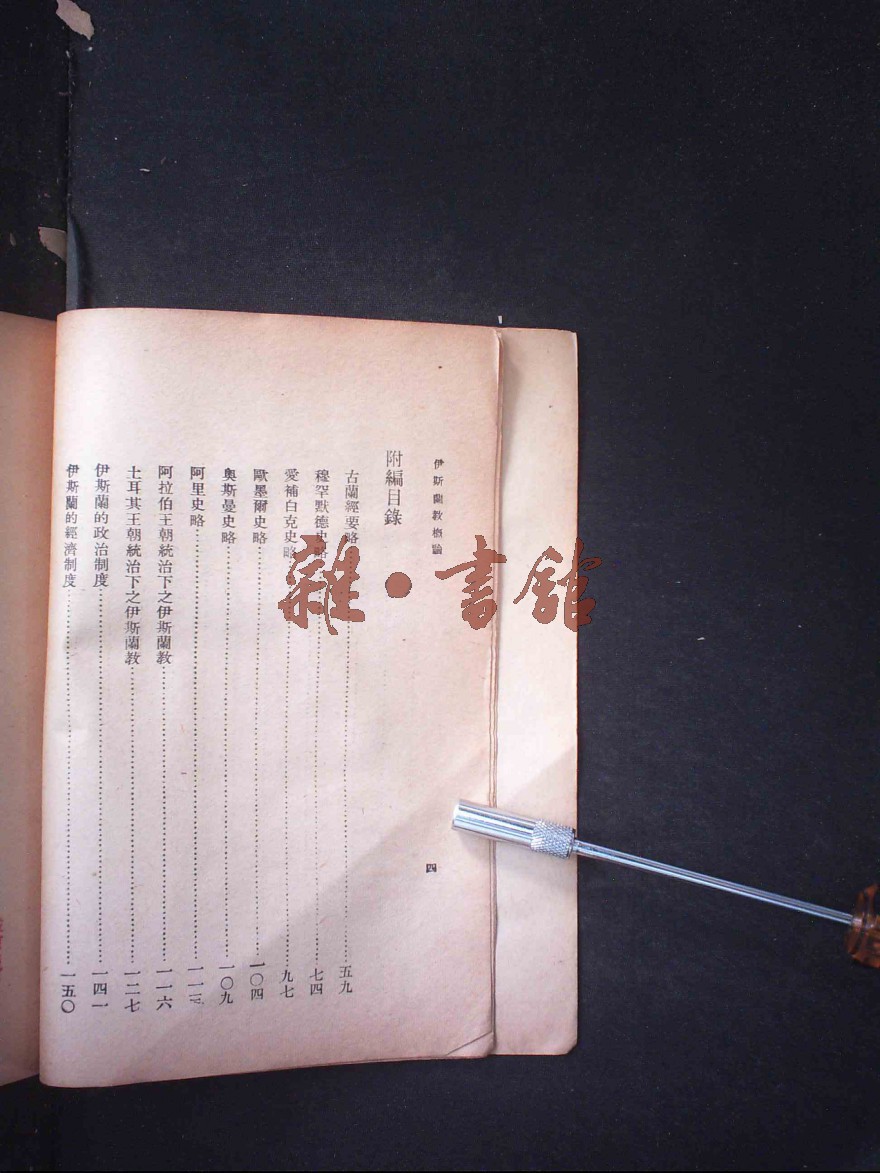 伊斯蘭教概論
附編目錄
古蘭經要略……五九
穆罕默德史略……七四
愛補白克史略……九七
歐墨爾史略……一〇四
奧斯曼史略……一〇九
阿里史略……一一三
阿拉伯王朝統治下之伊斯蘭教……一一六
土耳其王朝統治下之伊斯蘭教……一二七
伊斯蘭的政治制度……一四一
伊斯蘭的經濟制度……一五〇
四
雜·書館